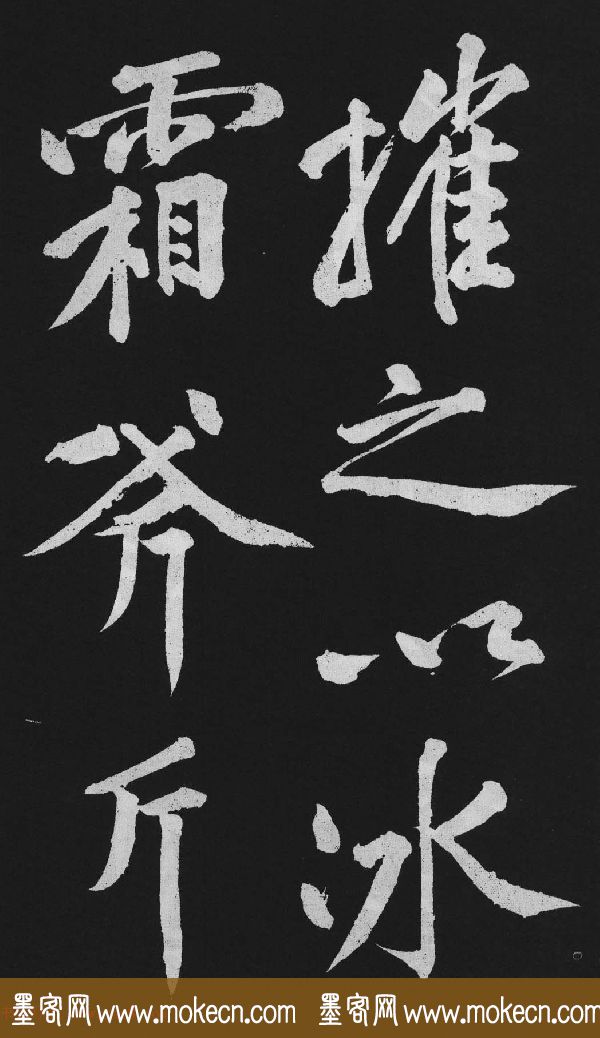 摧之以冰
霜斧斤
墨客网 www.mokecn.com 墨客网 www.mokecn.com